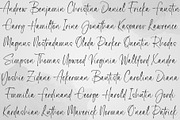 Andrew Benjamin Christina Daniel Frieda Faustin
Garry Hamilton Irine Jonathan Kasparov Lawrence
Magnus Nostradamus Oleda Parker Quentin Rhodes
Simpson Thomas Upword Virginia Walkford Xandra
Yochie Zidane Aderman Bautista Carolina Diana
Familia Ferdinand George Harold Ichatin Jordi
Kardashian Rathien Maverick Norman Oneal Patrick